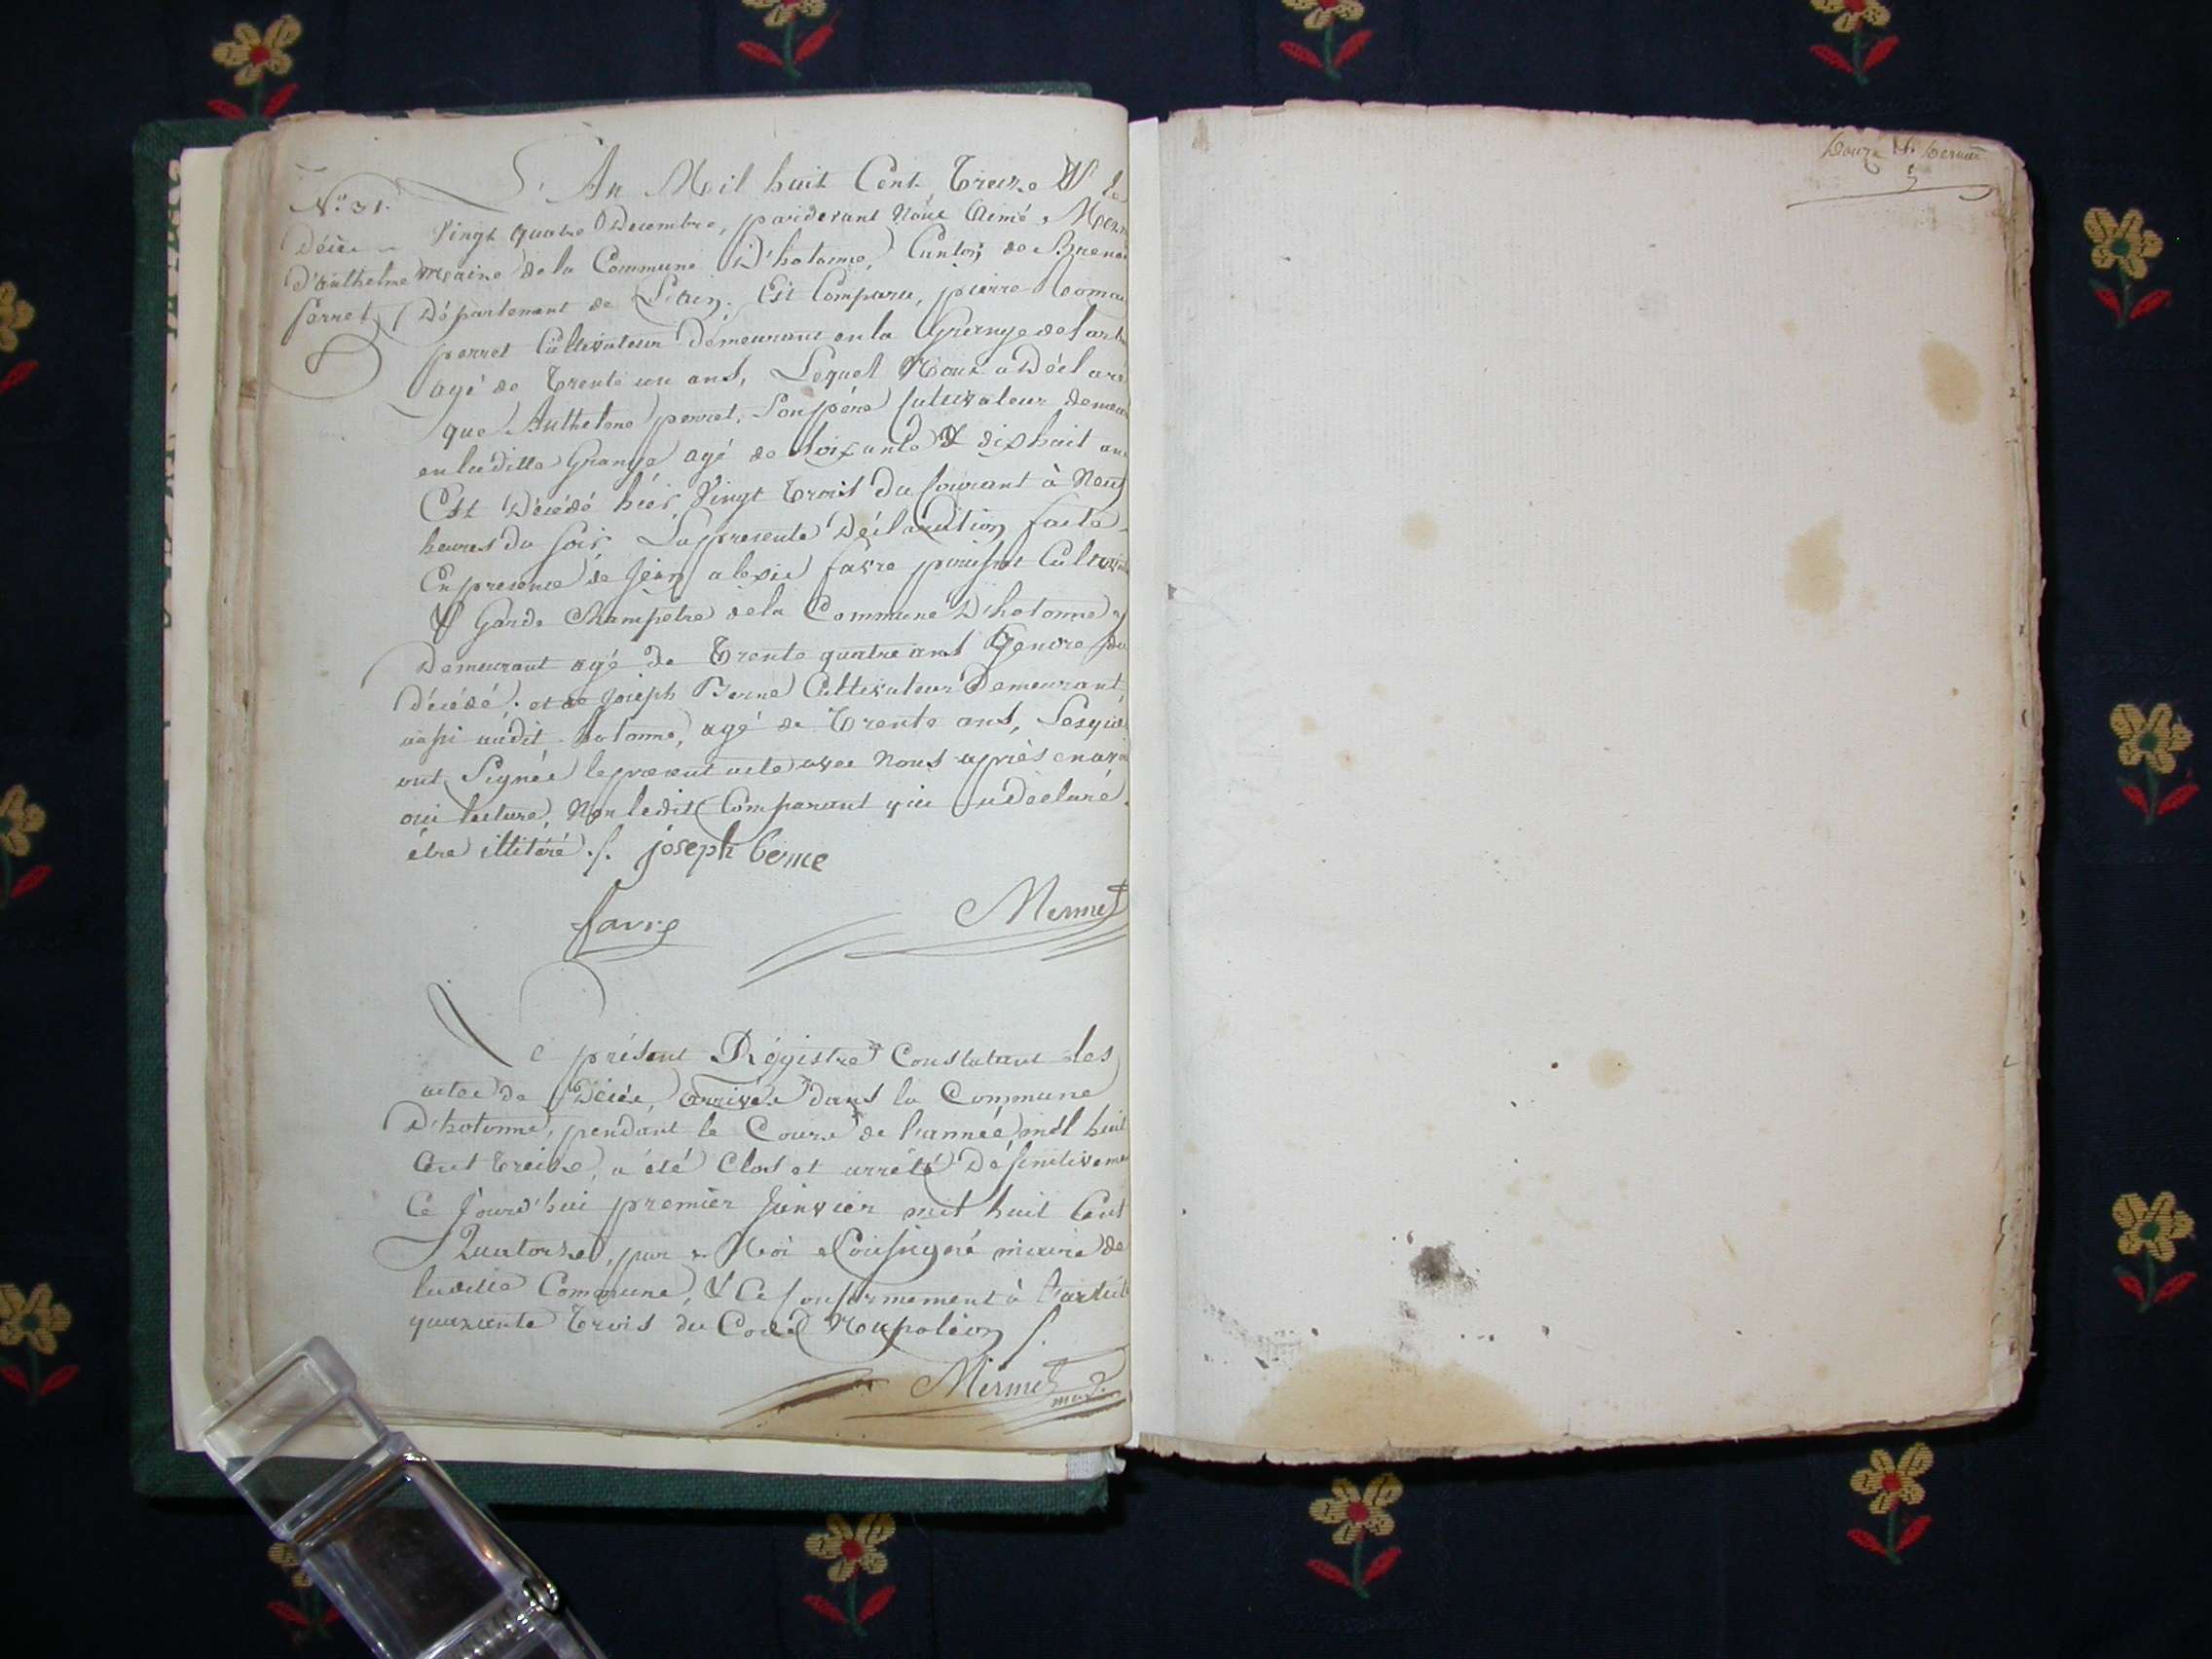 N.º 31.
Décès
d'Anthelme
Perret
L'An Meil huit Cent Treize & le
Vingt quatre Decembre, pardevant Nous Aimé Merm
maire de la Commune D'hotonne, Canton de Breno
Département de L'ain. Est Comparu, pierre Roma
perret Cultivateur Demeurant en la Grange de
agé de Trente un ans, Lequel Nous a Déclaré
que Anthelme perret, Son père Cultivateur demeu
en laditte Grange agé de Soixante & dix huit an
Est Décédé hier, Vingt Trois du Courant à Neuf
heures du Soir La presente Déclaration faite
En presence de Jean alexis favre Cultiva
& Garde Champêtre de la Commune D'hotonne y
Demeurant agé de Trente quatre ans Gendre du
Décédé. et de Joseph Berne Cultivateur Demeurant
aussi audit hotonne, agé de Trente ans, Lesquel
ont Signée le présent acte avec Nous après en avoi
oui lecture, Non ledit Comparant qui a déclaré
être illitéré ./. joseph berne
favre Mermet
Le présent Régistre Constatant les
actes de Décès, arrivés dans la Commune
D'hotonne, pendant le Cours de l'année mil huit
Cent treize, a été Clos et arrêté Définitiveme
Ce Jourd'hui premier Janvier mil huit Cent
Quatorze, par Moi Sousigné maire de
laditte Commune, & Ce Conformement à l'article
quarante Trois du Code Napoléon /.
Mermet
Douze & dernier